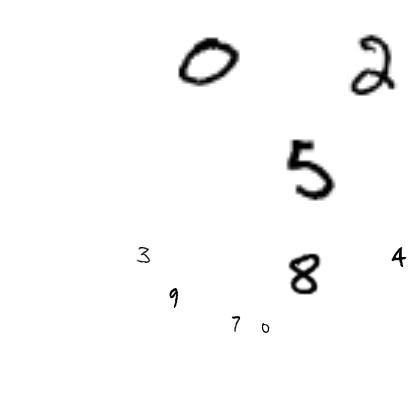 0 2
5
3 8 4
9
7 0